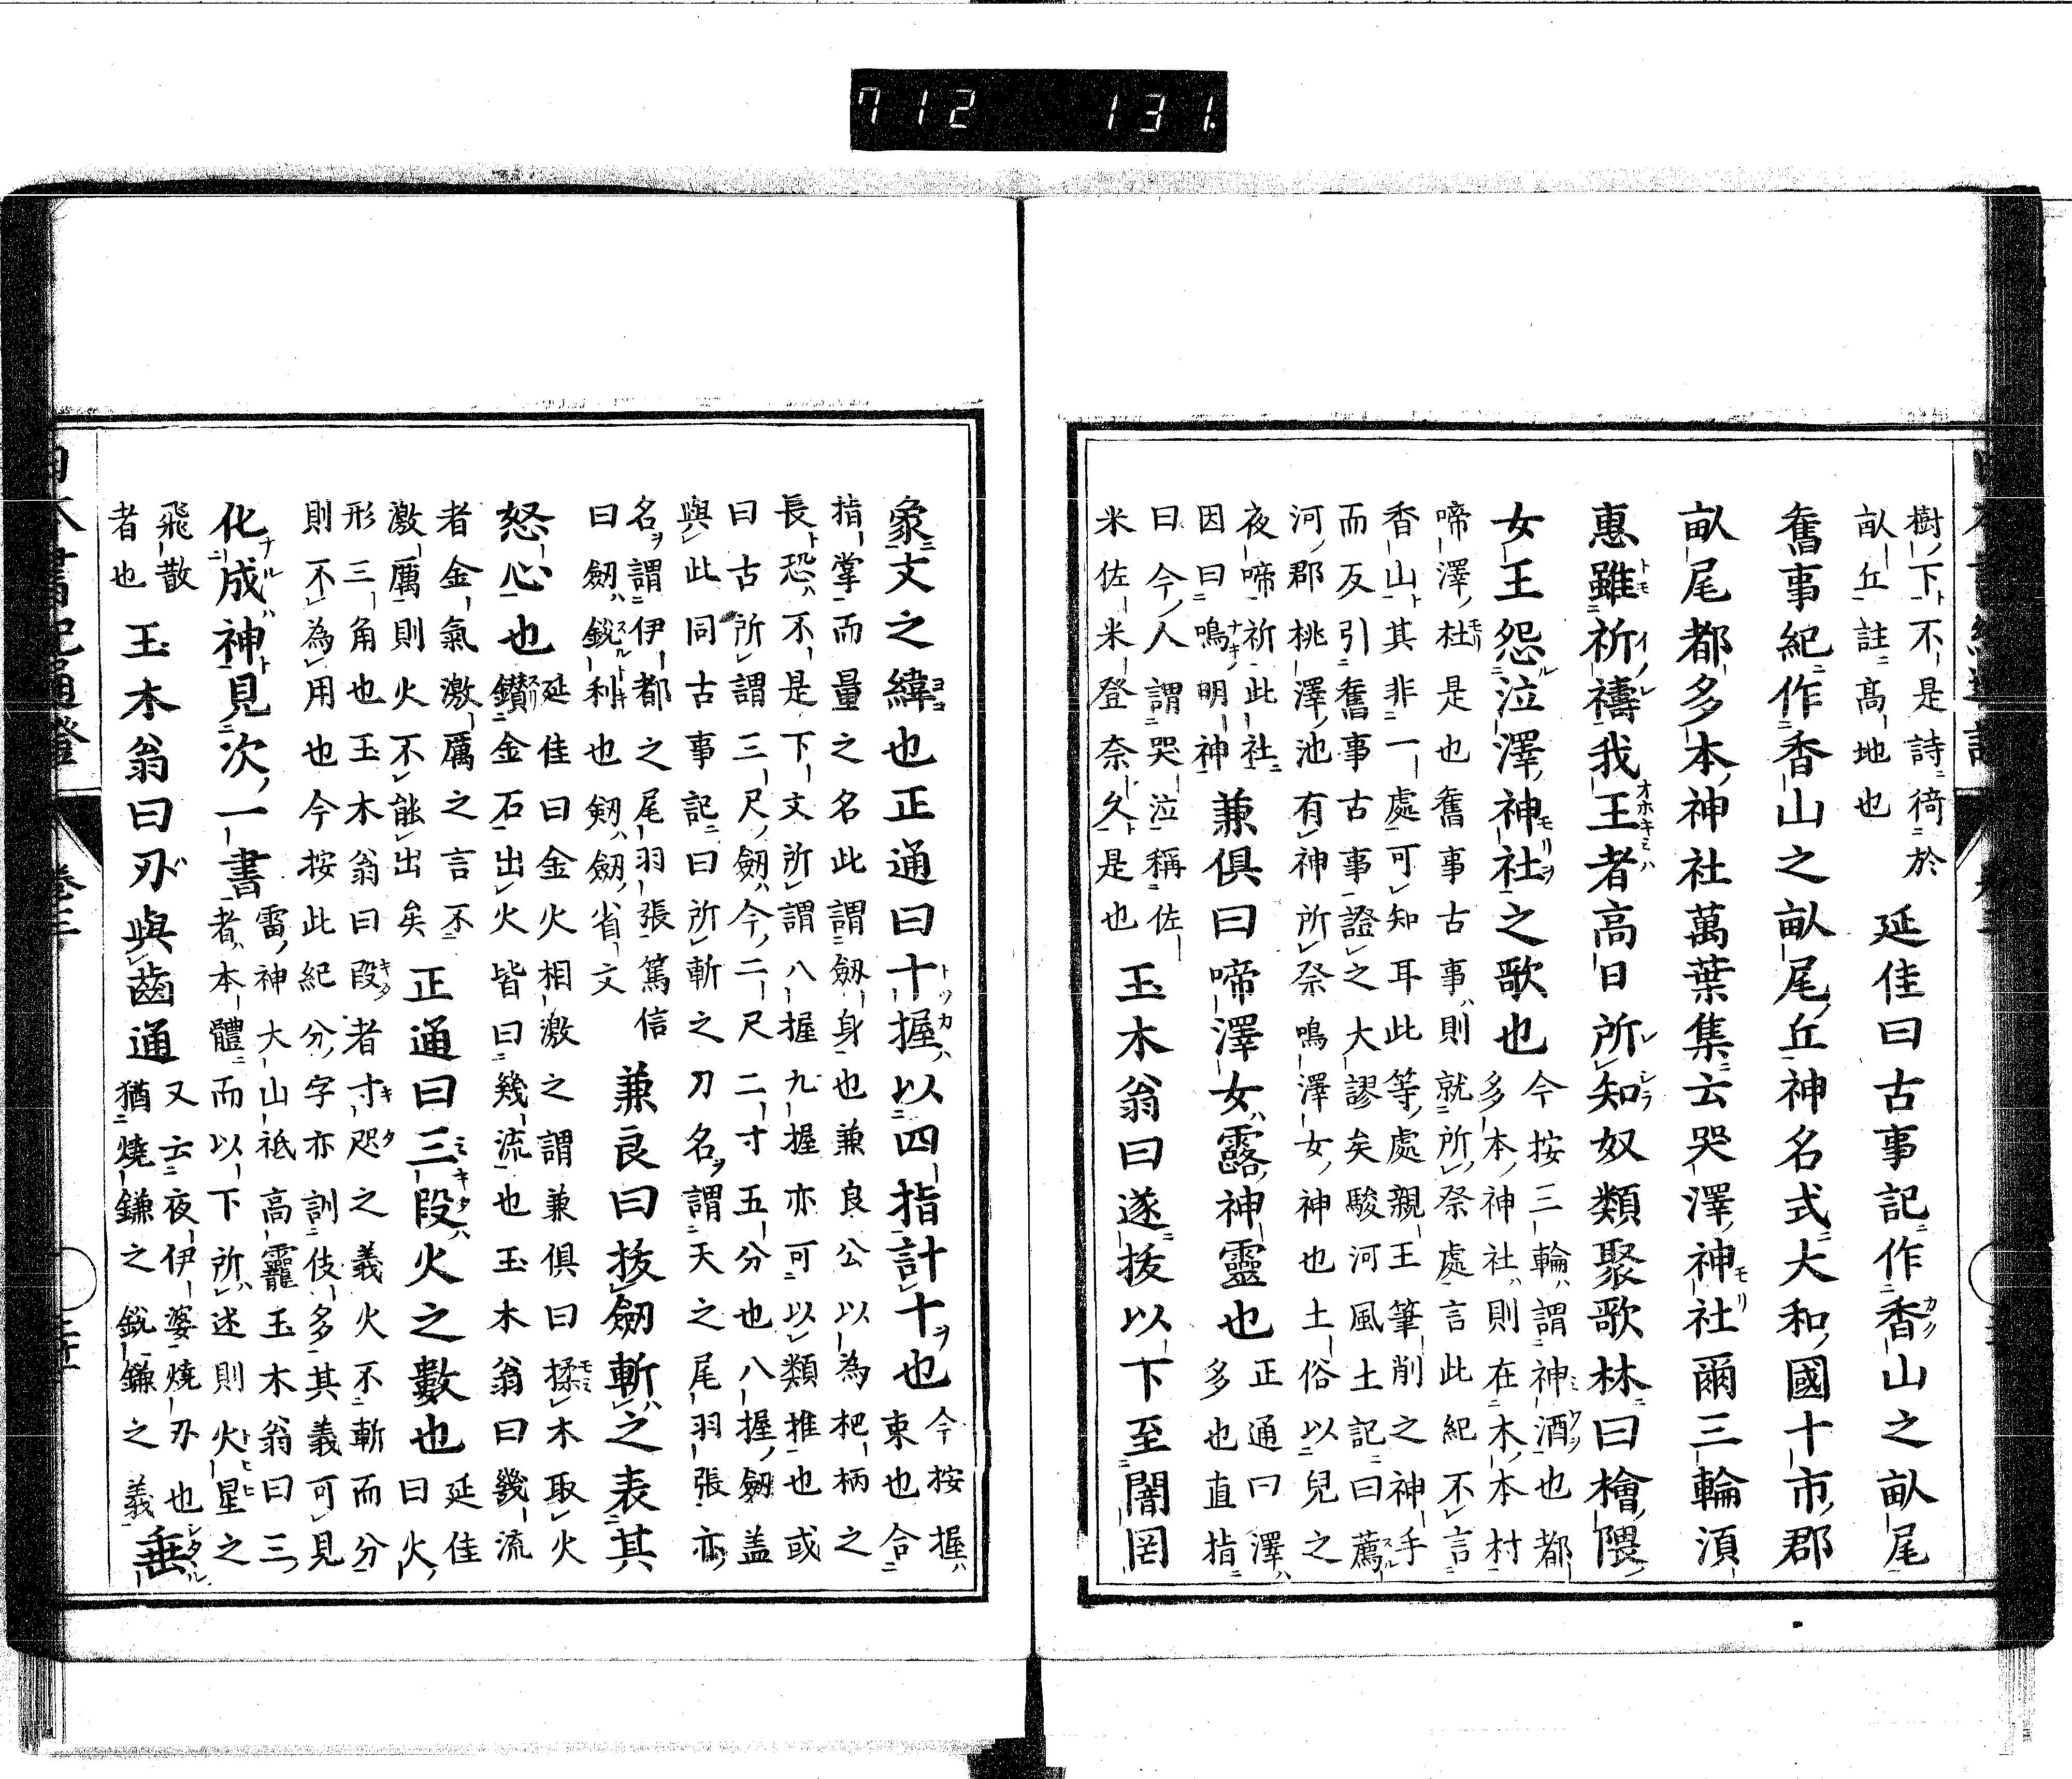 712 131.
樹下不是詩徛於
畝丘註高地也
延佳曰古事記作香山之畝尾
舊事紀作香山之畝尾丘神名式大和國十市郡
畝尾都多本神社萬葉集云哭澤神社爾三輪湏
惠雖祈禱我王者高日所知奴類聚歌林曰檜隈
女王怨泣澤神社之歌也
今按三輪謂神酒也都
多本神社則在木本村
啼澤杜是也舊事古事則就所祭處言此紀不言
香山其非一處可知耳此等處親王筆削之神手
而反引舊事古事證之大謬矣駿河風土記曰薦
河郡桃澤池有神所祭鳴澤女神也土俗以兒之
夜啼祈此社
因曰鳴明神
兼俱曰啼澤女露神靈也
正通曰澤
多也直指
曰今人謂哭泣稱佐
米佐米登奈久是也
玉木翁曰遂抜以下至闇罔
象文之緯也正通曰十握以四指計十也
今按握
束也合
指掌而量之名此謂劔身也兼良公以為杷柄之
長恐不是下文所謂八握九握亦可以類推也或
曰古所謂三尺劔今二尺二寸五分也八握劔盖
與此同古事記曰所斬之刀名謂天之尾羽張亦
名謂伊都之尾羽張篤信
曰劔銳利也劔劔省文
兼良曰抜劔斬之表其
怒心也
延佳曰金火相激之謂兼俱曰揉木取火
鑚金石出火皆曰幾流也玉木翁曰幾流
者金氣激厲之言不
激厲則火不能出矣
正通曰三段火之數也
延佳
曰火
形三角也玉木翁曰段者寸咫之義火不斬而分
則不為用也今按此紀分字亦訓伎多其義可見
化成神見次一書
雷神大山祇高龗玉木翁曰三
者本體而以下所述則火星之
飛散
者也
玉木翁曰刃與齒通
又云夜伊婆燒刃也
猶燒鎌之銳鎌之義
垂